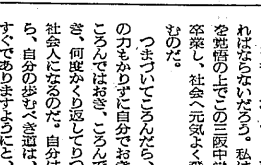 ればならないだろう。私は
を覚悟の上でこの三阪中
卒業し、社会へ元気よく
むのだ。
つまづいてころんだら、
の力もかりずに自分でおき
ころんではおき、ころんで
き、何度かくり返してりつ
社会人になるのだ。自分は
ら、自分の歩むべき道は、
すぐでありますようにと、